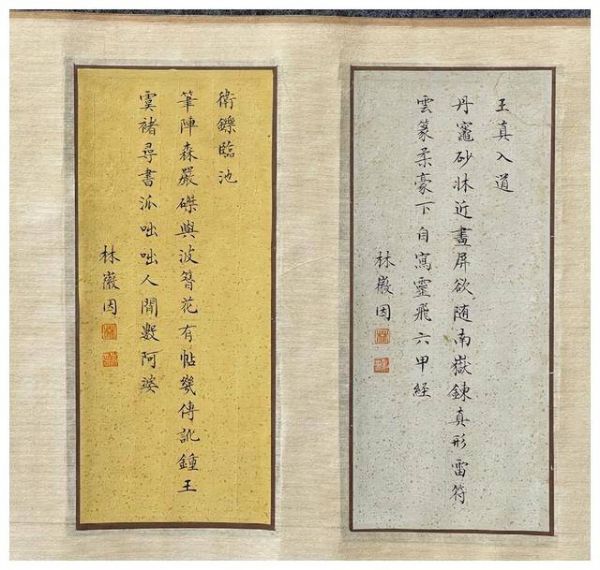 玉真入道
丹竈砂牀近畫屏欲随南嶽鍊真形雷符
雲篆柔豪下自寫靈飛六甲経
林徽因
衛鑠臨池
筆陣森嚴磔與波簪花有帖幾傳訛鍾王
虞褚尋書派咄咄人間數阿婆
林徽因